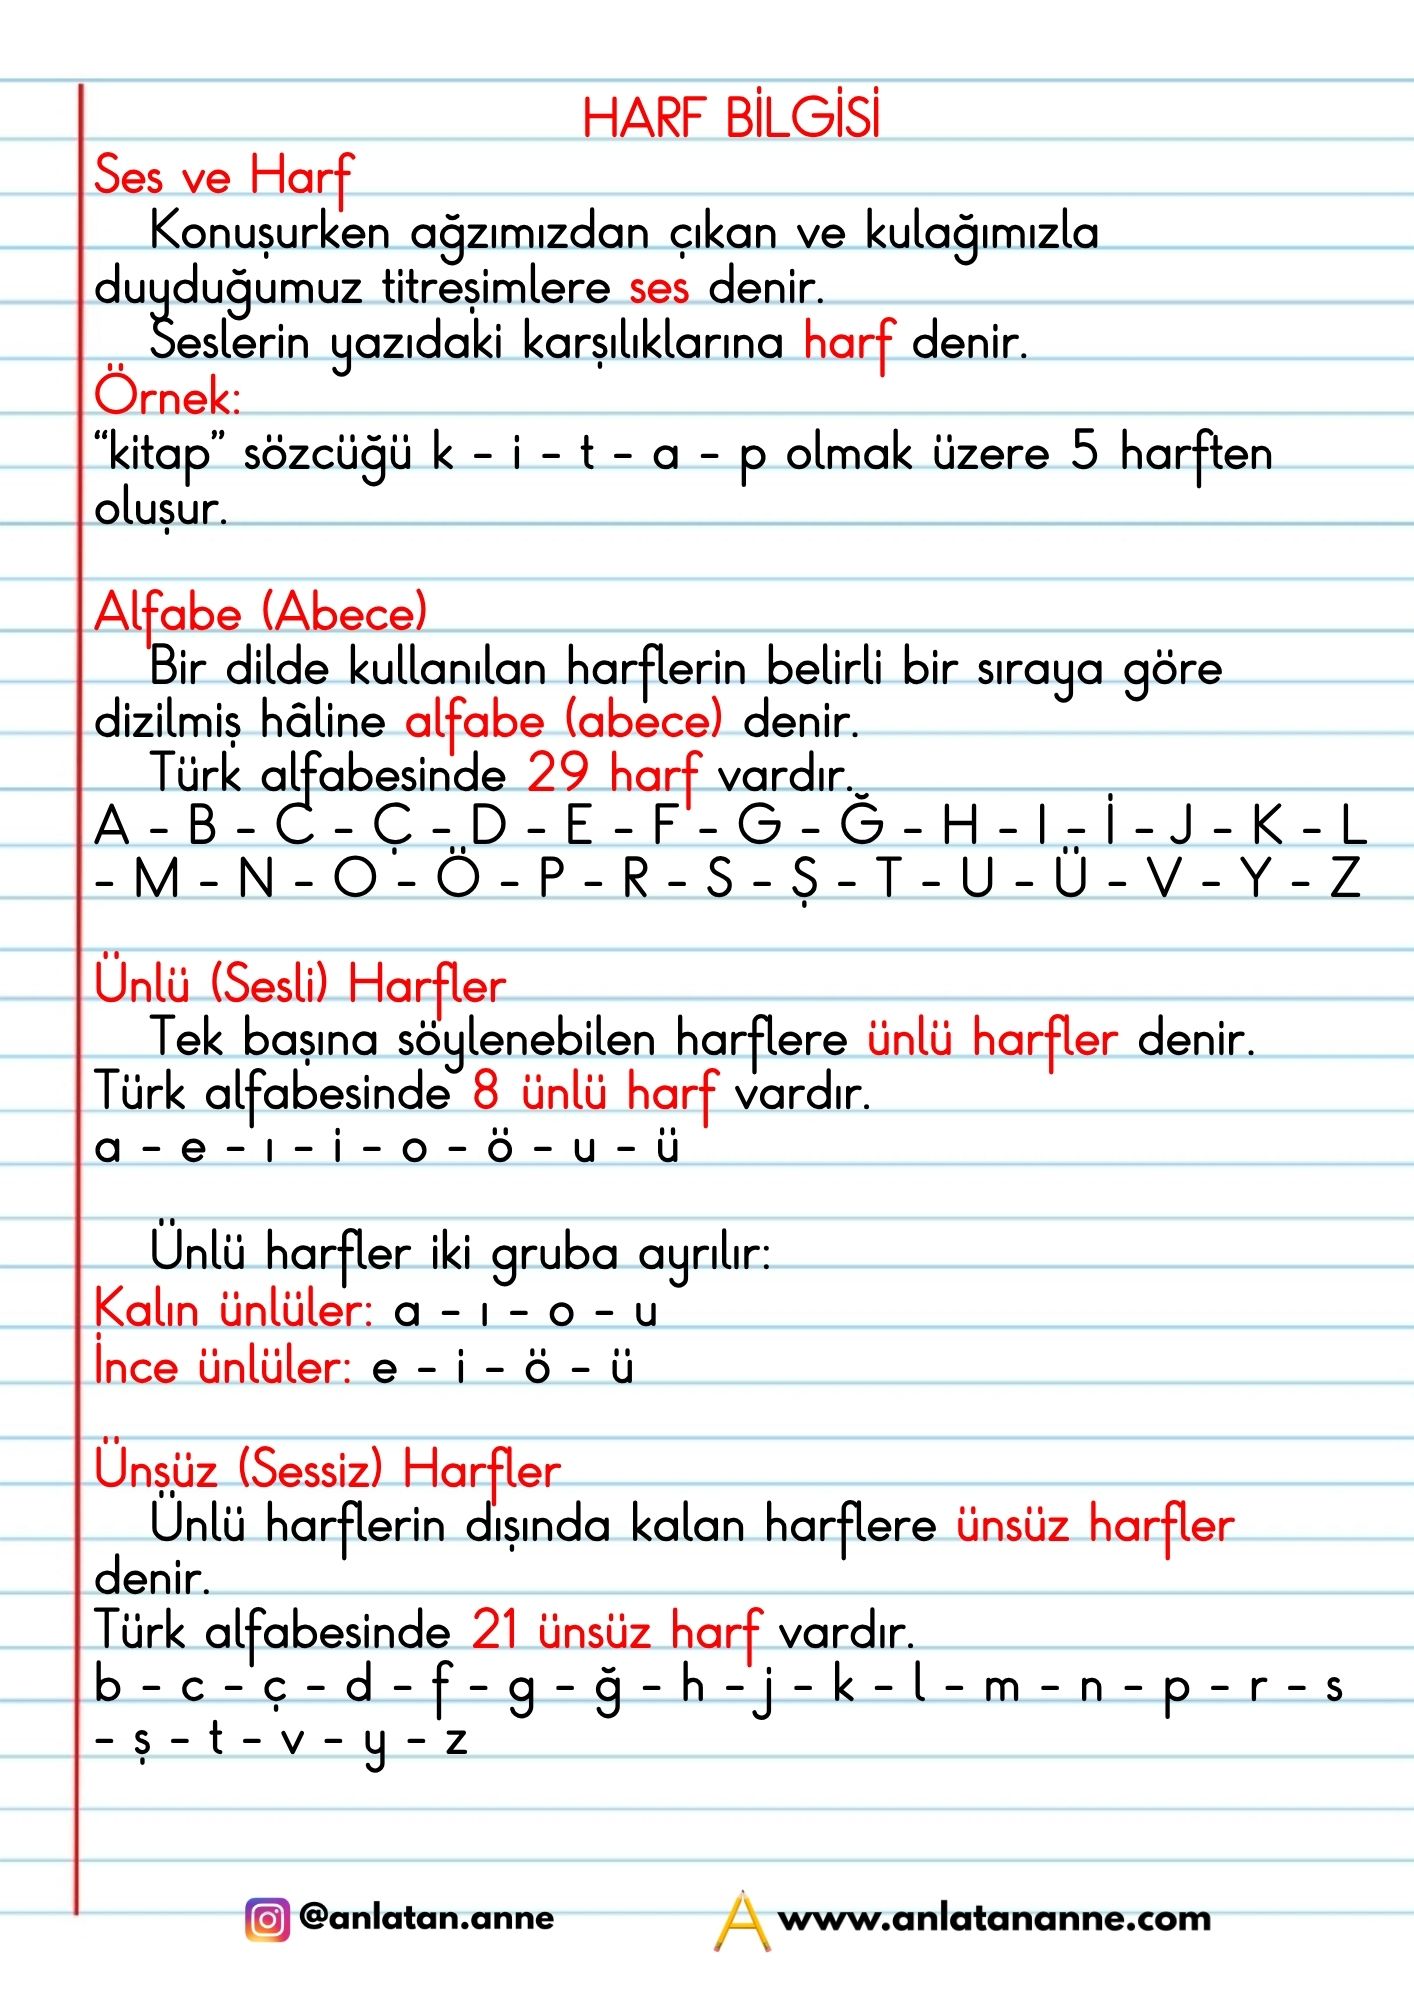 HARF BİLGİSİ
Ses ve Harf
Konuşurken ağzımızdan çıkan ve kulağımızla
duyduğumuz titreşimlere ses denir.
Seslerin yazıdaki karşılıklarına harf denir.
Örnek:
“kitap” sözcüğü k - i - t - a - p olmak üzere 5 harften
oluşur.
Alfabe (Abece)
Bir dilde kullanılan harflerin belirli bir sıraya göre
dizilmiş hâline alfabe (abece) denir.
Türk alfabesinde 29 harf vardır.
A - B - C - Ç - D - E - F - G - Ğ - H - I - İ - J - K - L
- M - N - O - Ö - P - R - S - Ş - T - U - Ü - V - Y - Z
Ünlü (Sesli) Harfler
Tek başına söylenebilen harflere ünlü harfler denir.
Türk alfabesinde 8 ünlü harf vardır.
a - e - ı - i - o - ö - u - ü
Ünlü harfler iki gruba ayrılır:
Kalın ünlüler: a - ı - o - u
İnce ünlüler: e - i - ö - ü
Ünsüz (Sessiz) Harfler
Ünlü harflerin dışında kalan harflere ünsüz harfler
denir.
Türk alfabesinde 21 ünsüz harf vardır.
b - c - ç - d - f - g - ğ - h - j - k - l - m - n - p - r - s
- ş - t - v - y - z
@anlatan.anne www.anlatananne.com